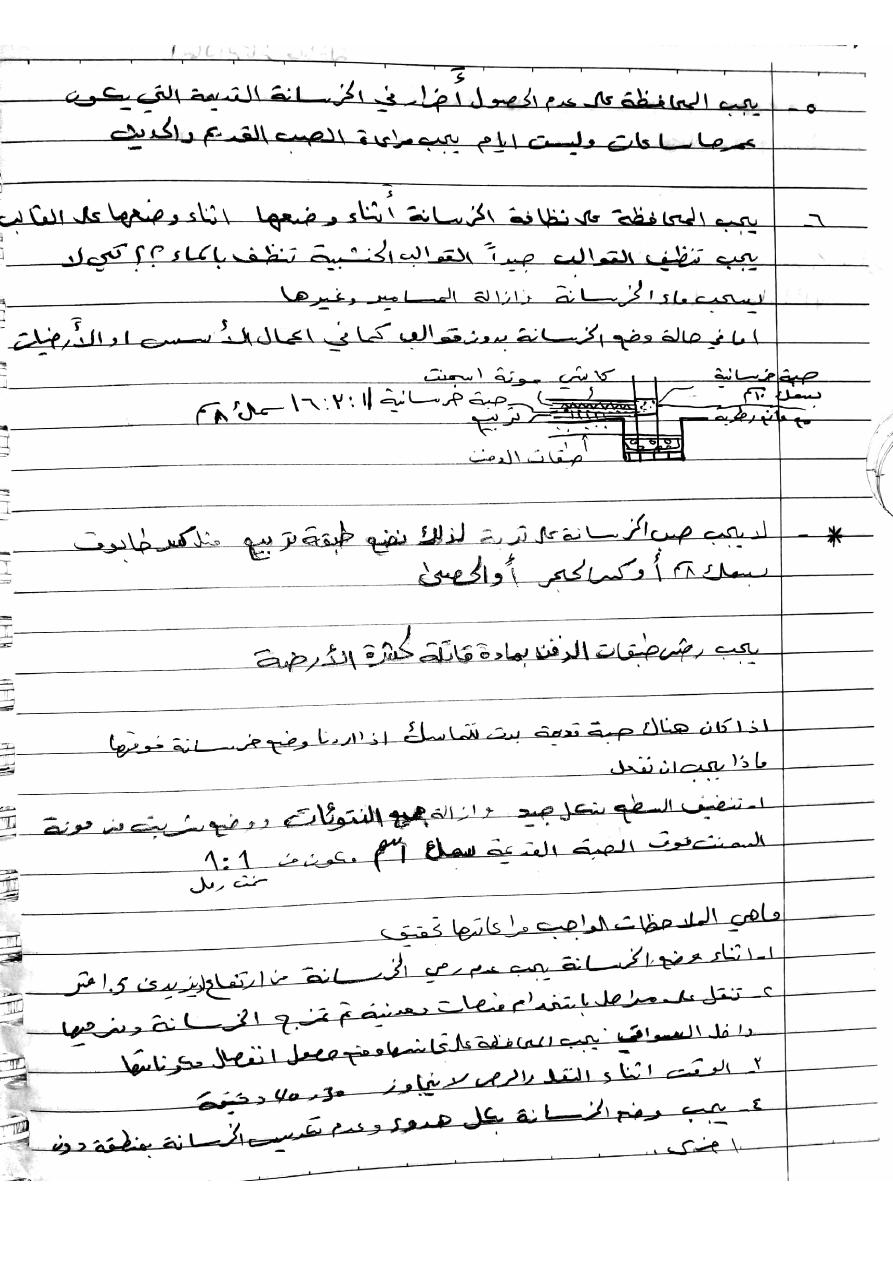 ٥- يجب المحافظة على عدم الحصول أضرار في الخرسانة القديمة التي يكون
عمرها ساعات وليست ايام يجب مراعاة الصب القديم والحديث
٦- يجب المحافظة على نظافة الخرسانة أثناء وضعها اثناء وضعها على القالب
يجب تنظيف القوالب جيداً القوالب الخشبية تنظف بالماء ؟؟ لكي لا
يسحب ماء الخرسانة وازالة المسامير وغيرها
اما في حالة وضع الخرسانة بدون قوالب كما في اعمال الأسس او الأرضيات
صبة خرسانية كاشي مونة اسمنت
بسمك ١٠سم صبة خرسانية ١:٢:٦ سمك ٨سم
مع مانع رطوبة تربيع
طبقات الدفن
* - لا يجب صب الخرسانة على تربة لذلك نضع طبقة تربيع مثل كسر طابوق
بسمك ٨سم أو كسر الحجر أو الحصى
يجب رش طبقات الدفن بمادة قاتلة لحشرة الأرضة
اذا كان هناك صبة قديمة بدت تتماسك اذا اردنا وضع خرسانة فوقها
ماذا يجب ان نفعل
١- تنضيف السطح بشكل جيد وازالة جميع النتوئات ووضع شربت من مونة
السمنت فوق الصبة القديمة بسمك ١سم مكون من ١:١
سمنت رمل
ماهي الملاحظات الواجب مراعاتها تحقيق
١- اثناء وضع الخرسانة يجب عدم رمي الخرسانة من ارتفاع يزيد عن ١.٥ متر
٢- تنقل على مراحل باستخدام منصات معدنية ثم تمزج الخرسانة ونرميها
داخل السواقي يجب المحافظة على تجانسها ومنع حصول انفصال مكوناتها
٣- الوقت اثناء النقل والرص لا يتجاوز دقيقة
٤- يجب وضع الخرسانة بكل هدوء وعدم تكديس الخرسانة بمنطقة دون
اخرى.